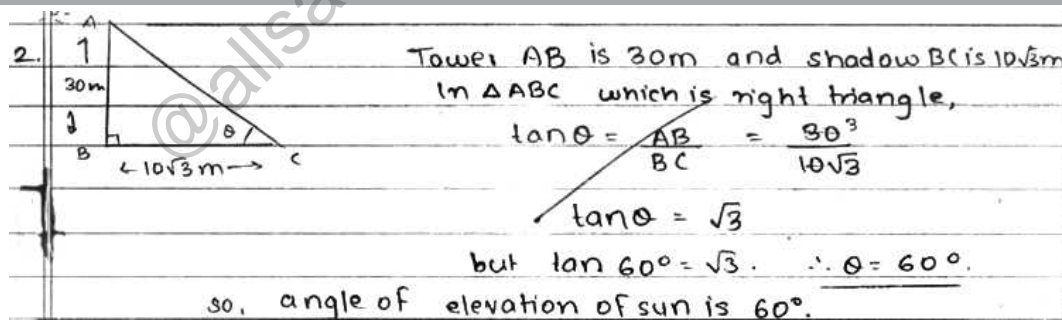 @allsa
2.
A
30m
B
θ
C
← 10√3 m →
Tower AB is 30m and shadow BC is 10√3m
In △ABC which is right triangle,
tanθ = AB/BC = 30³/10√3
tanθ = √3
but tan 60° = √3. ∴ θ = 60°.
so, angle of elevation of sun is 60°.